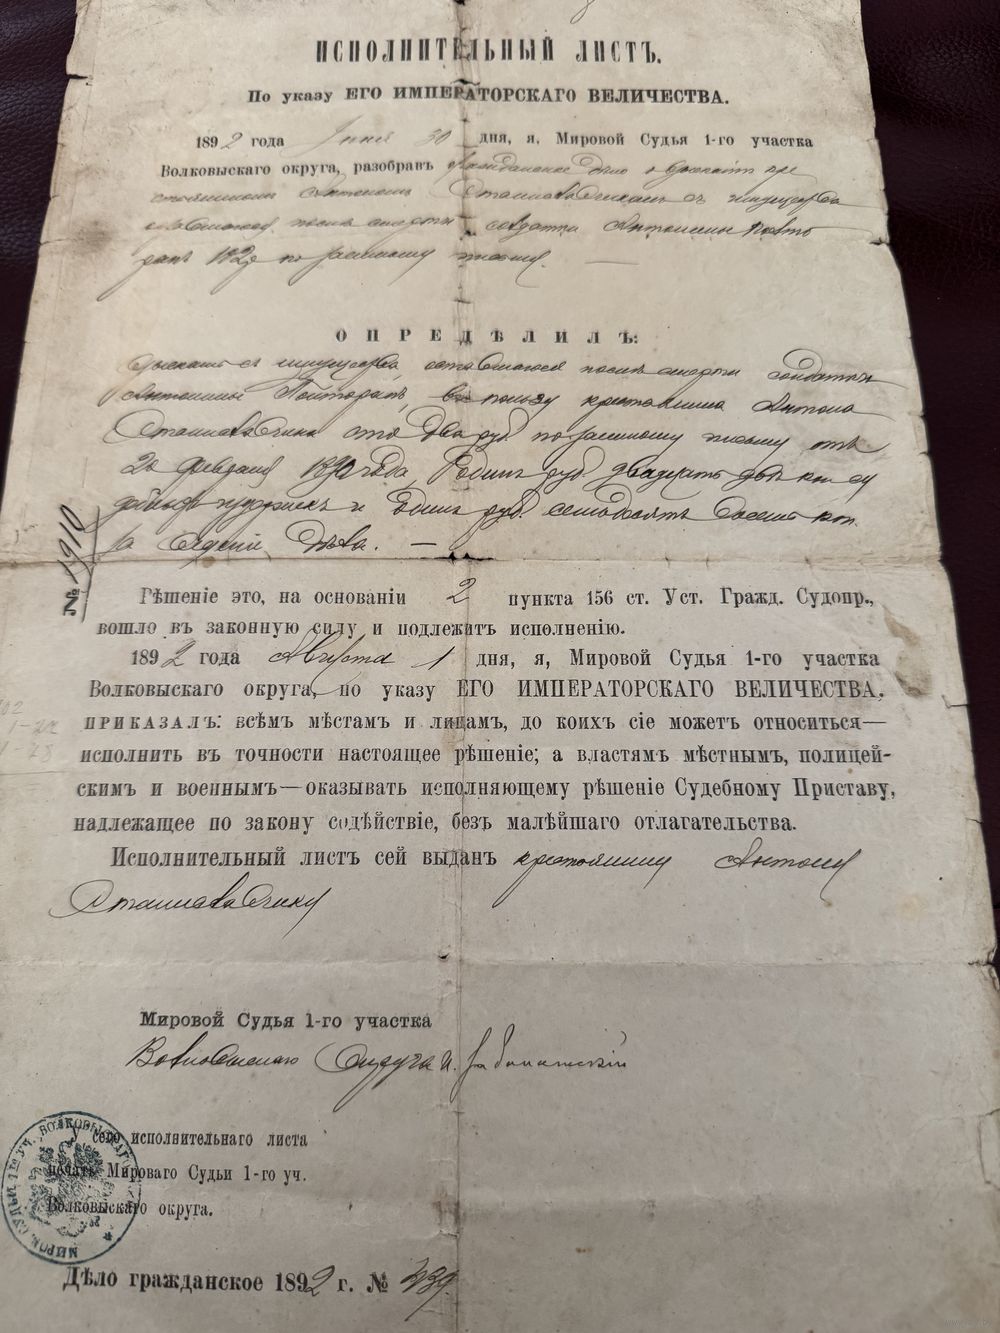 ИСПОЛНИТЕЛЬНЫЙ ЛИСТЪ.
По указу ЕГО ИМПЕРАТОРСКАГО ВЕЛИЧЕСТВА.
1892 года Іюня 30 дня, я, Мировой Судья 1-го участка
Волковыскаго округа, разобравъ гражданское дѣло о взысканіи кре
стьяниномъ Антономъ Станиславчикомъ съ имущества
оставшагося послѣ смерти солдатки Антонины
102 р по заемному письму. —
ОПРЕДѢЛИЛЪ:
Взыскать съ имущества, оставшагося послѣ смерти солдатки
Антонины въ пользу крестьянина Антона
Станиславчика сто два руб. по заемному письму отъ
20 февраля 1890 года, руб. двадцать двѣ коп. су
дебныхъ издержекъ и одинъ руб. семьдесятъ восемь коп.
за веденіе дѣла. —
№ 1910
Рѣшеніе это, на основаніи 2 пункта 156 ст. Уст. Гражд. Судопр.,
вошло въ законную силу и подлежитъ исполненію.
1892 года Августа 1 дня, я, Мировой Судья 1-го участка
Волковыскаго округа, по указу ЕГО ИМПЕРАТОРСКАГО ВЕЛИЧЕСТВА,
ПРИКАЗАЛЪ: всѣмъ мѣстамъ и лицамъ, до коихъ сіе можетъ относиться—
исполнить въ точности настоящее рѣшеніе; а властямъ мѣстнымъ, полицей-
скимъ и военнымъ—оказывать исполняющему рѣшеніе Судебному Приставу,
надлежащее по закону содѣйствіе, безъ малѣйшаго отлагательства.
Исполнительный листъ сей выданъ крестьянину Антону
Станиславчику
Мировой Судья 1-го участка
Волковыскаго Округа
У сего исполнительнаго листа
печать Мироваго Судьи 1-го уч.
Волковыскаго округа.
МИРОВ. СУДЬИ 1го УЧ. ВОЛКОВЫСКАГО
Дѣло гражданское 1892 г. № 439.